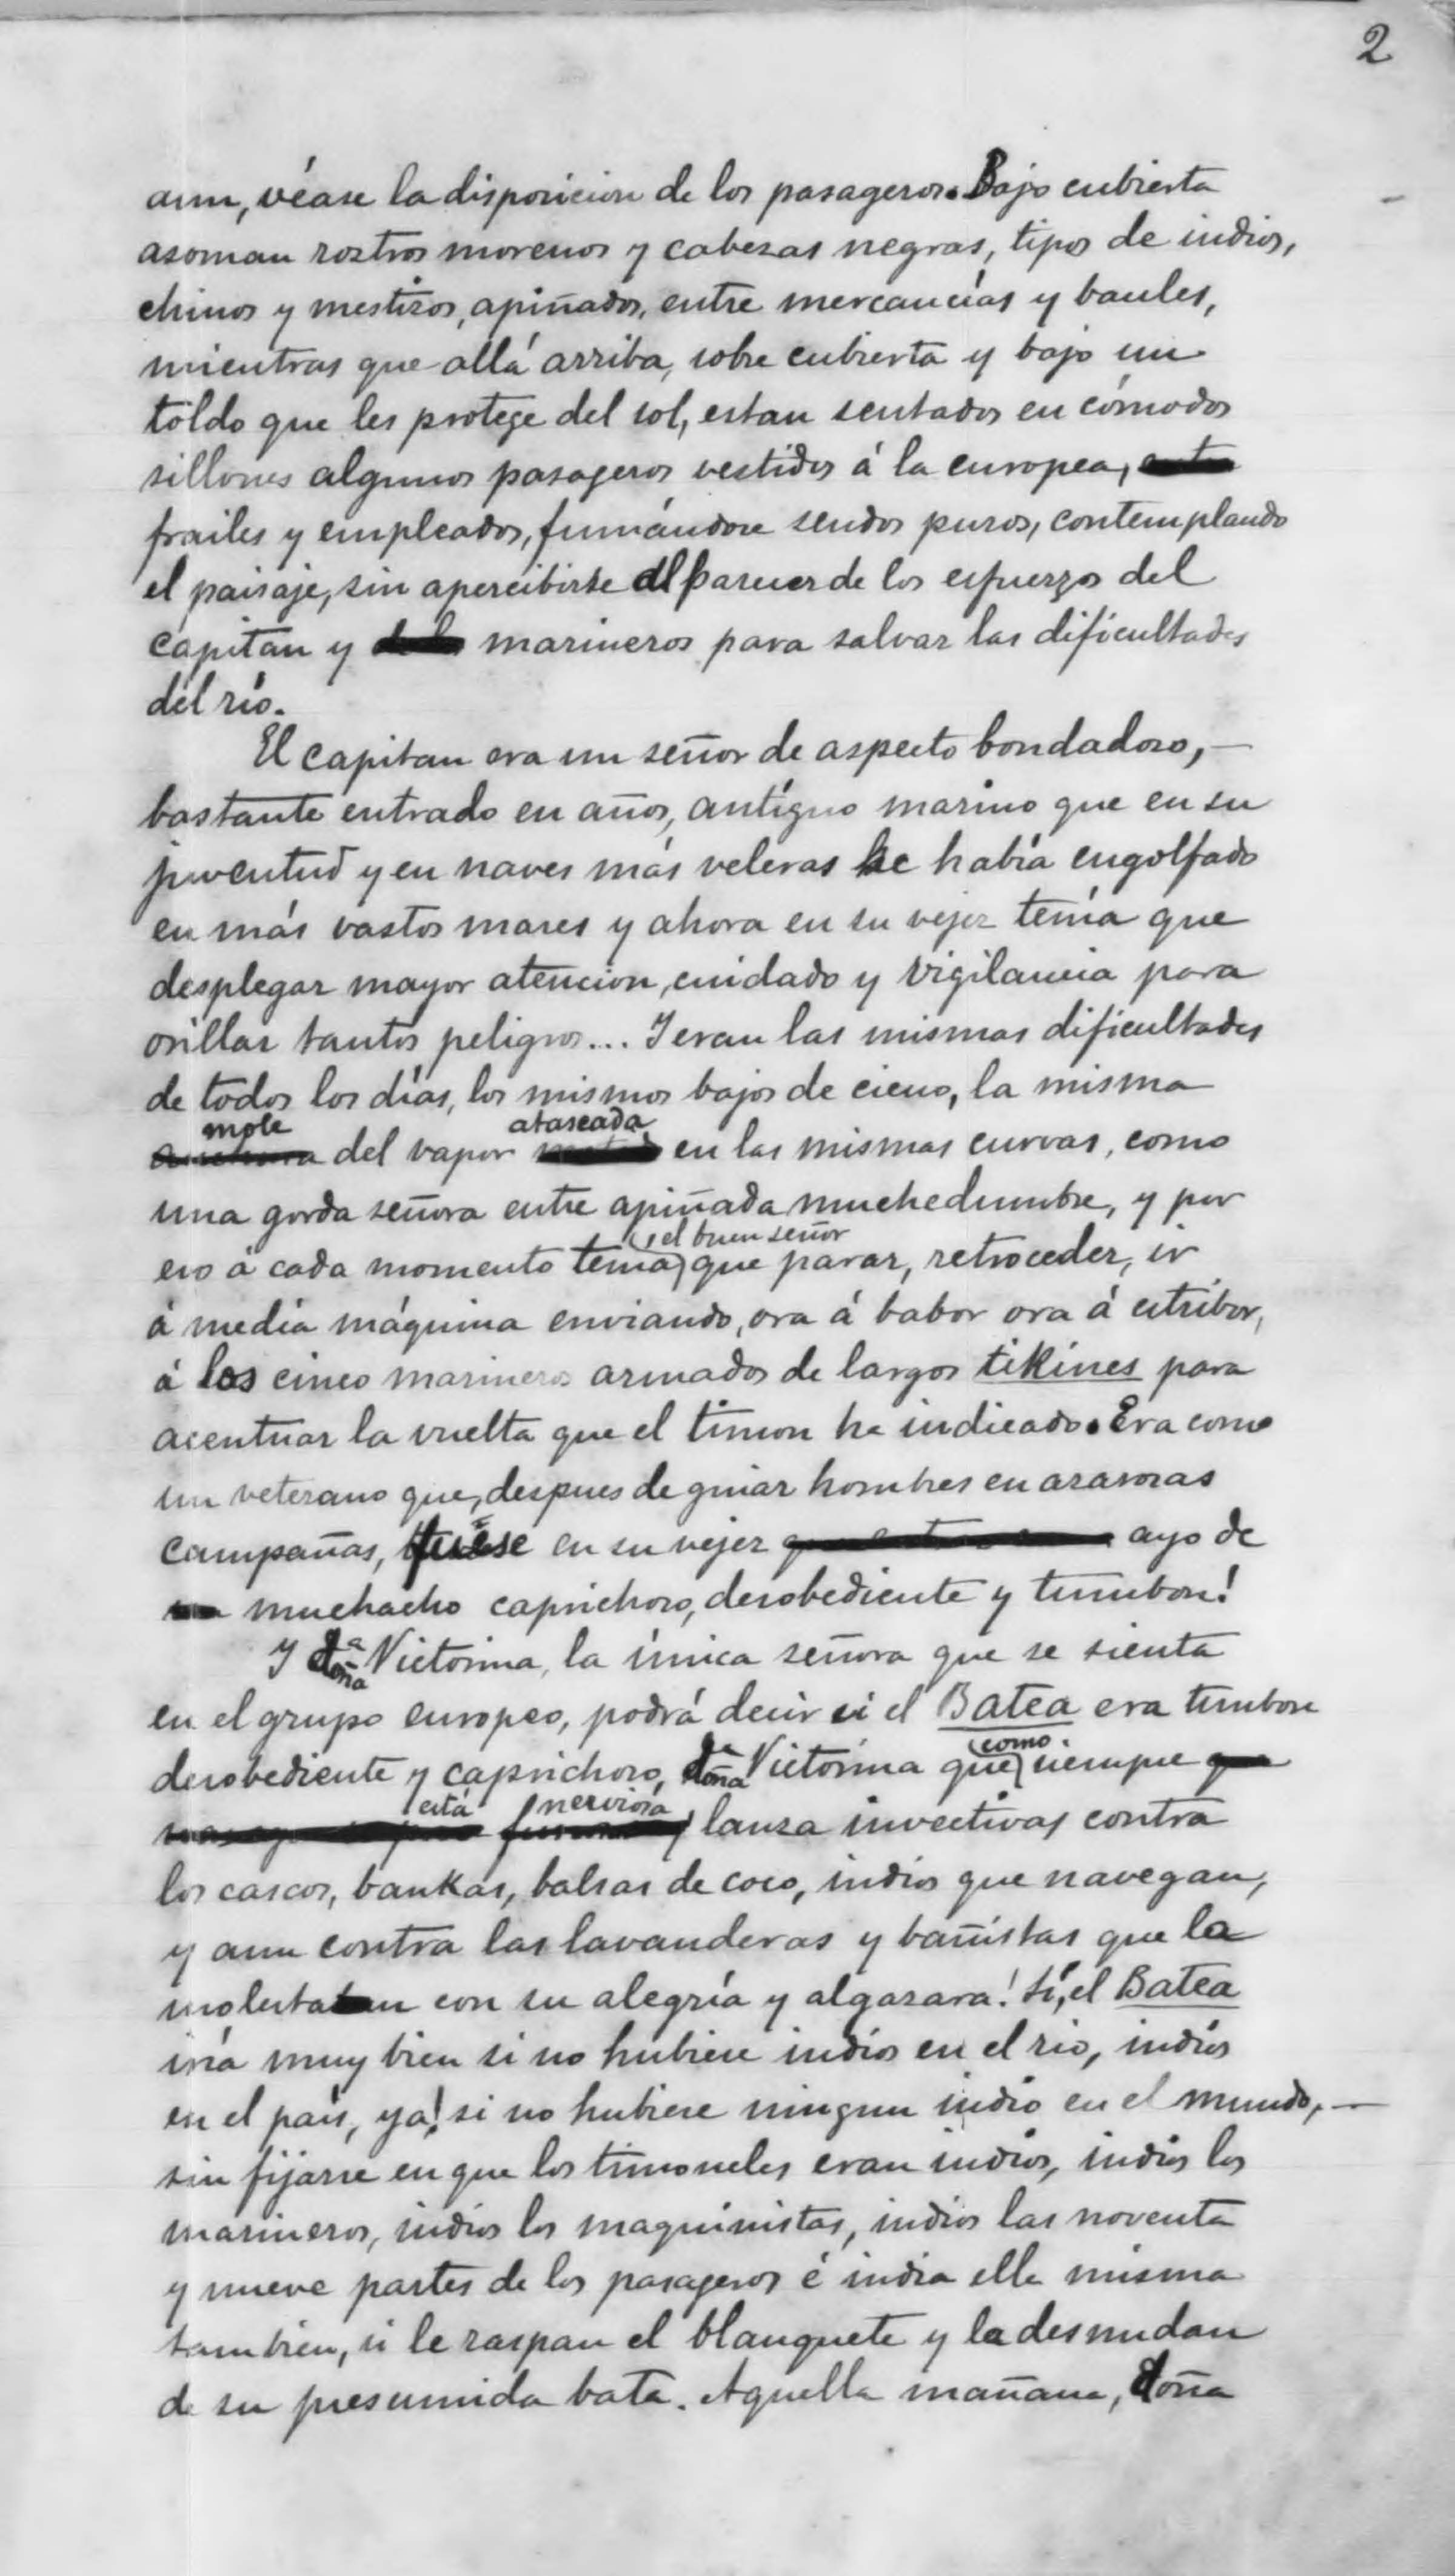 2
aun, véase la disposicion de los pasageros. Bajo cubierta
asoman rostros morenos y cabezas negras, tipos de indios,
chinos y mestizos, apiñados, entre mercancías y baules,
mientras que allá arriba, sobre cubierta y bajo un
toldo que les protege del sol, estan sentados en cómodos
sillones algunos pasageros vestidos á la europea,
frailes y empleados, fumándose sendos puros, contemplando
el paisaje, sin apercibirse al parecer de los esfuerzos del
capitan y marineros para salvar las dificultades
del río.
El capitan era un señor de aspecto bondadoso,—
bastante entrado en años, antíguo marino que en su
juventud y en naves más veleras se había engolfado
en más vastos mares y ahora en su vejez tenía que
desplegar mayor atencion, cuidado y vigilancia para
orillar tantos peligros... Y eran las mismas dificultades
de todos los días, los mismos bajos de cieno, la misma
mole del vapor atascada en las mismas curvas, como
una gorda señora entre apiñada muchedumbre, y por
eso á cada momento tenía el buen señor que parar, retroceder, ir
á media máquina enviando, ora á babor ora á estribor,
á los cinco marineros armados de largos tikines para
acentuar la vuelta que el timon ha indicado. Era como
un veterano que, despues de guiar hombres en azarosas
campañas, fuese en su vejez ayo de
muchacho caprichoso, desobediente y tumbon!
Y doña Victorina, la única señora que se sienta
en el grupo europeo, podrá decir si el Batea era tumbon
desobediente y caprichoso, doña Victorina que como siempre
está nerviosa, lanza invectivas contra
los cascos, bankas, balsas de coco, indios que navegan,
y aun contra las lavanderas y bañistas que la
molestaban con su alegría y algazara! Sí, el Batea
iría muy bien si no hubiese indios en el rio, indios
en el país, ya! si no hubiese ningun indio en el mundo,—
sin fijarse en que los timoneles eran indios, indios los
marineros, indios los maquinistas, indios las noventa
y nueve partes de los pasageros é india ella misma
tambien, si le raspan el blanquete y la desnudan
de su presumida bata. Aquella mañana, doña